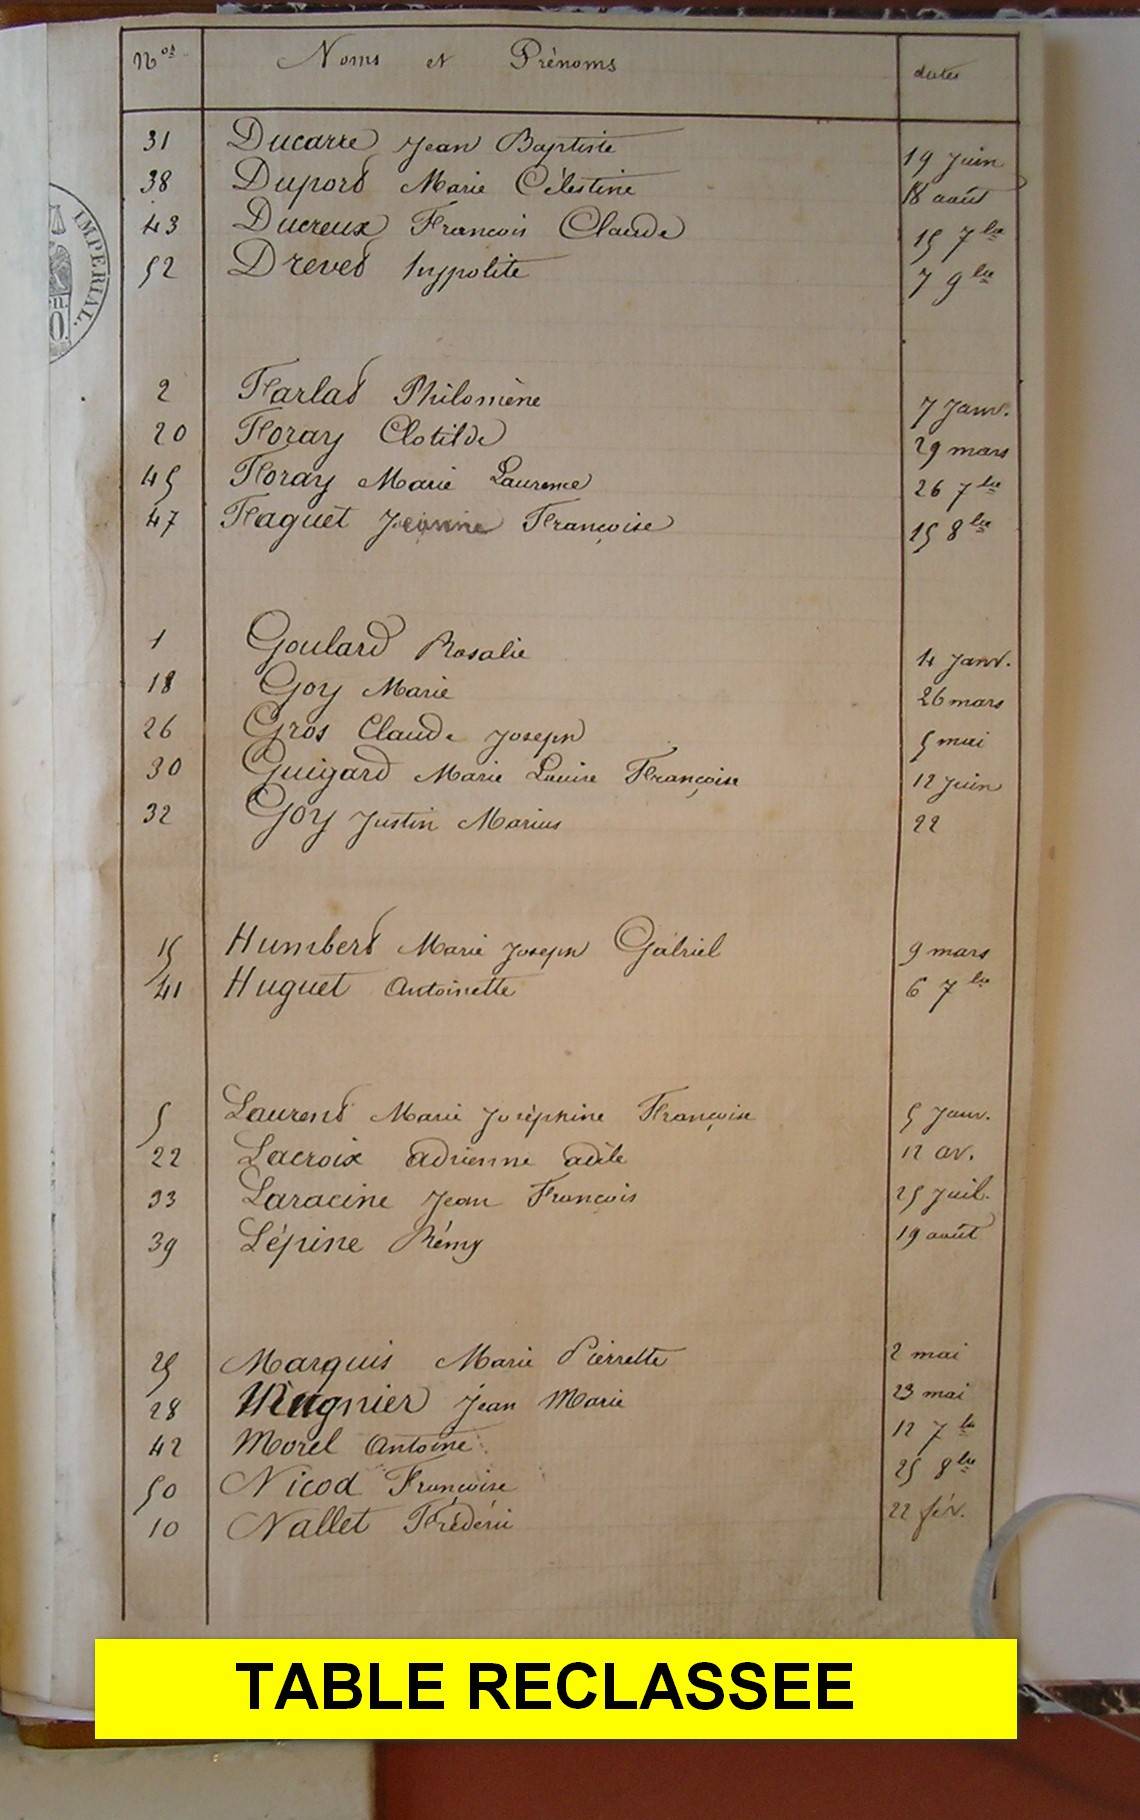 Nos Noms et Prénoms dates
31 Ducarre Jean Baptiste 19 juin
38 Duport Marie Célestine 18 août
43 Ducreux François Claude 15 7bre
52 Drevet hypolite 7 9bre
2 Farlat Philomène 7 Janv.
20 Foray Clotilde 29 mars
45 Foray Marie Laurence 26 7bre
47 Faguet Jeanne Françoise 15 8bre
1 Goulard Rosalie 4 Janv.
18 Goy Marie 26 mars
26 Gros Claude Joseph 5 mai
30 Guigard Marie Louise Françoise 12 juin
32 Goy Justin Marius 22
15 Humbert Marie Joseph Gabriel 9 mars
41 Huguet Antoinette 6 7bre
5 Laurent Marie Joséphine Françoise 5 Janv.
22 Lacroix Adrienne adèle 12 av.
33 Laracine Jean François 25 Juil.
39 Lépine Rémy 19 août
25 Marquis Marie Pierrette 2 mai
28 Mugnier Jean Marie 23 mai
42 Morel Antoine 12 7bre
50 Nicod Françoise 25 8bre
10 Nallet Frédéric 22 fév.
IMPERIAL.
TABLE RECLASSEE